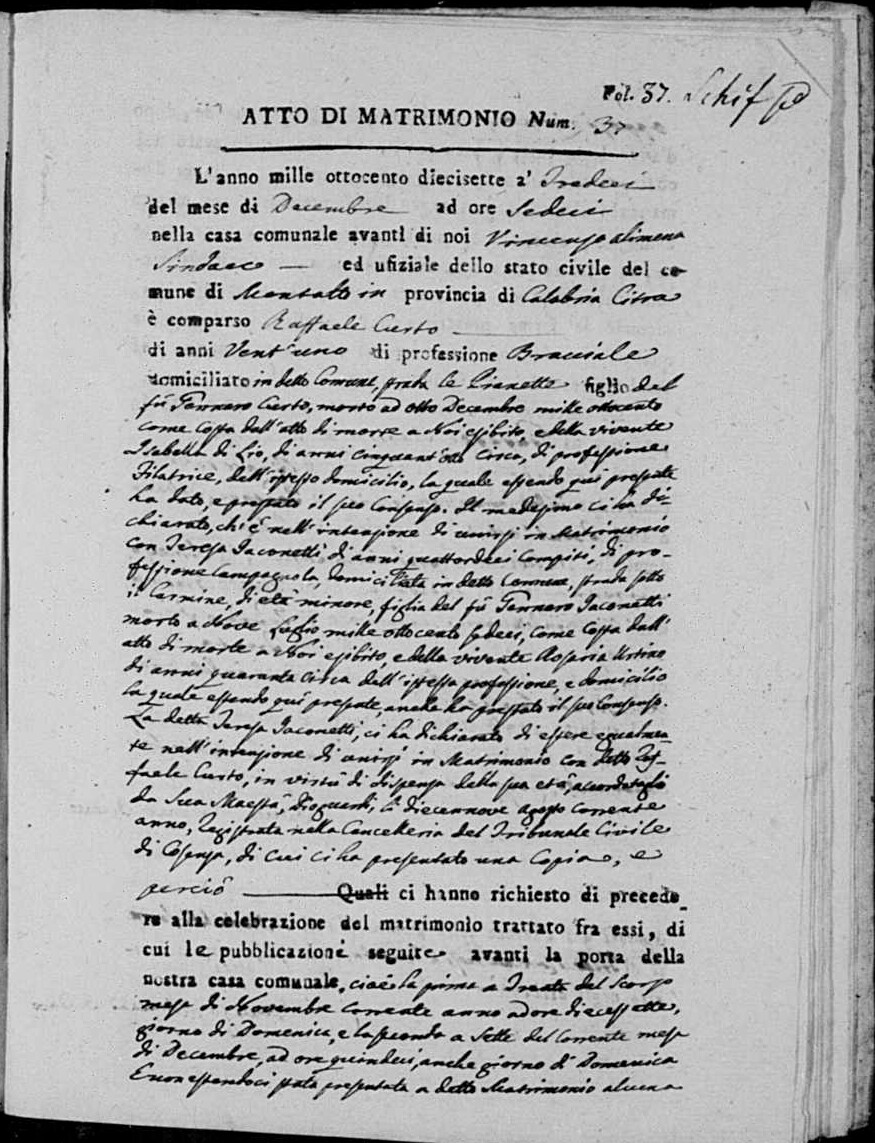 Fol. 37. Schif
ATTO DI MATRIMONIO Num. 37
L'anno mille ottocento diecisette a' Tredeci
del mese di Decembre ad ore Sedeci
nella casa comunale avanti di noi Vincenzo alimena
Sindaco ed ufiziale dello stato civile del co-
mune di Montalto in provincia di Calabria Citra
è comparso Raffaele Curto
di anni Vent'uno di professione Bracciale
domiciliato in detto Comune, strada le Pianette figlio del
fù Gennaro Curto, morto ad otto Decembre mille ottocento
come costa dall'atto di morte a Noi esibito, e della vivente
Isabella di Lio, di anni cinquant'otto circa, di professione
Filatrice, dell'istesso domicilio, la quale essendo qui presente
ha dato, e prestato il suo Consenso. Il medesimo ci ha di-
chiarato, ch'è nell'intenzione di unirsi in Matrimonio
con Teresa Iaconetti di anni quattordeci compiti, di pro-
fessione Campagnola, domiciliata in detto Comune, strada sotto
il Carmine, di età minore, figlia del fù Gennaro Iaconetti
morto a Nove Luglio mille ottocento sedeci, come costa dall'
atto di morte a Noi esibito, e della vivente Rosaria Ursino
di anni quaranta circa dell'istessa professione, e domicilio
la quale essendo qui presente, anche ha prestato il suo Consenso.
La detta Teresa Iaconetti, ci ha dichiarato di essere egualmen-
te nell'intenzione di unirsi in Matrimonio con detto Raf-
faele Curto, in virtù di dispensa della sua età, accordatagli
da Sua Maestà, Dioguardi, li diecennove agosto corrente
anno, registrata nella Cancelleria del Tribunale Civile
di Cosenza, di cui ci ha presentato una Copia, e
perciò Quali ci hanno richiesto di precede-
re alla celebrazione del matrimonio trattato fra essi, di
cui le pubblicazioni seguite avanti la porta della
nostra casa comunale, cioè la prima a Trenta del Scorso
mese di Novembre corrente anno ad ore diecessette,
giorno di Domenica, e la seconda a Sette del Corrente mese
di Decembre, ad ore quindeci, anche giorno di Domenica
E non essendoci stata presentata a detto Matrimonio alcuna